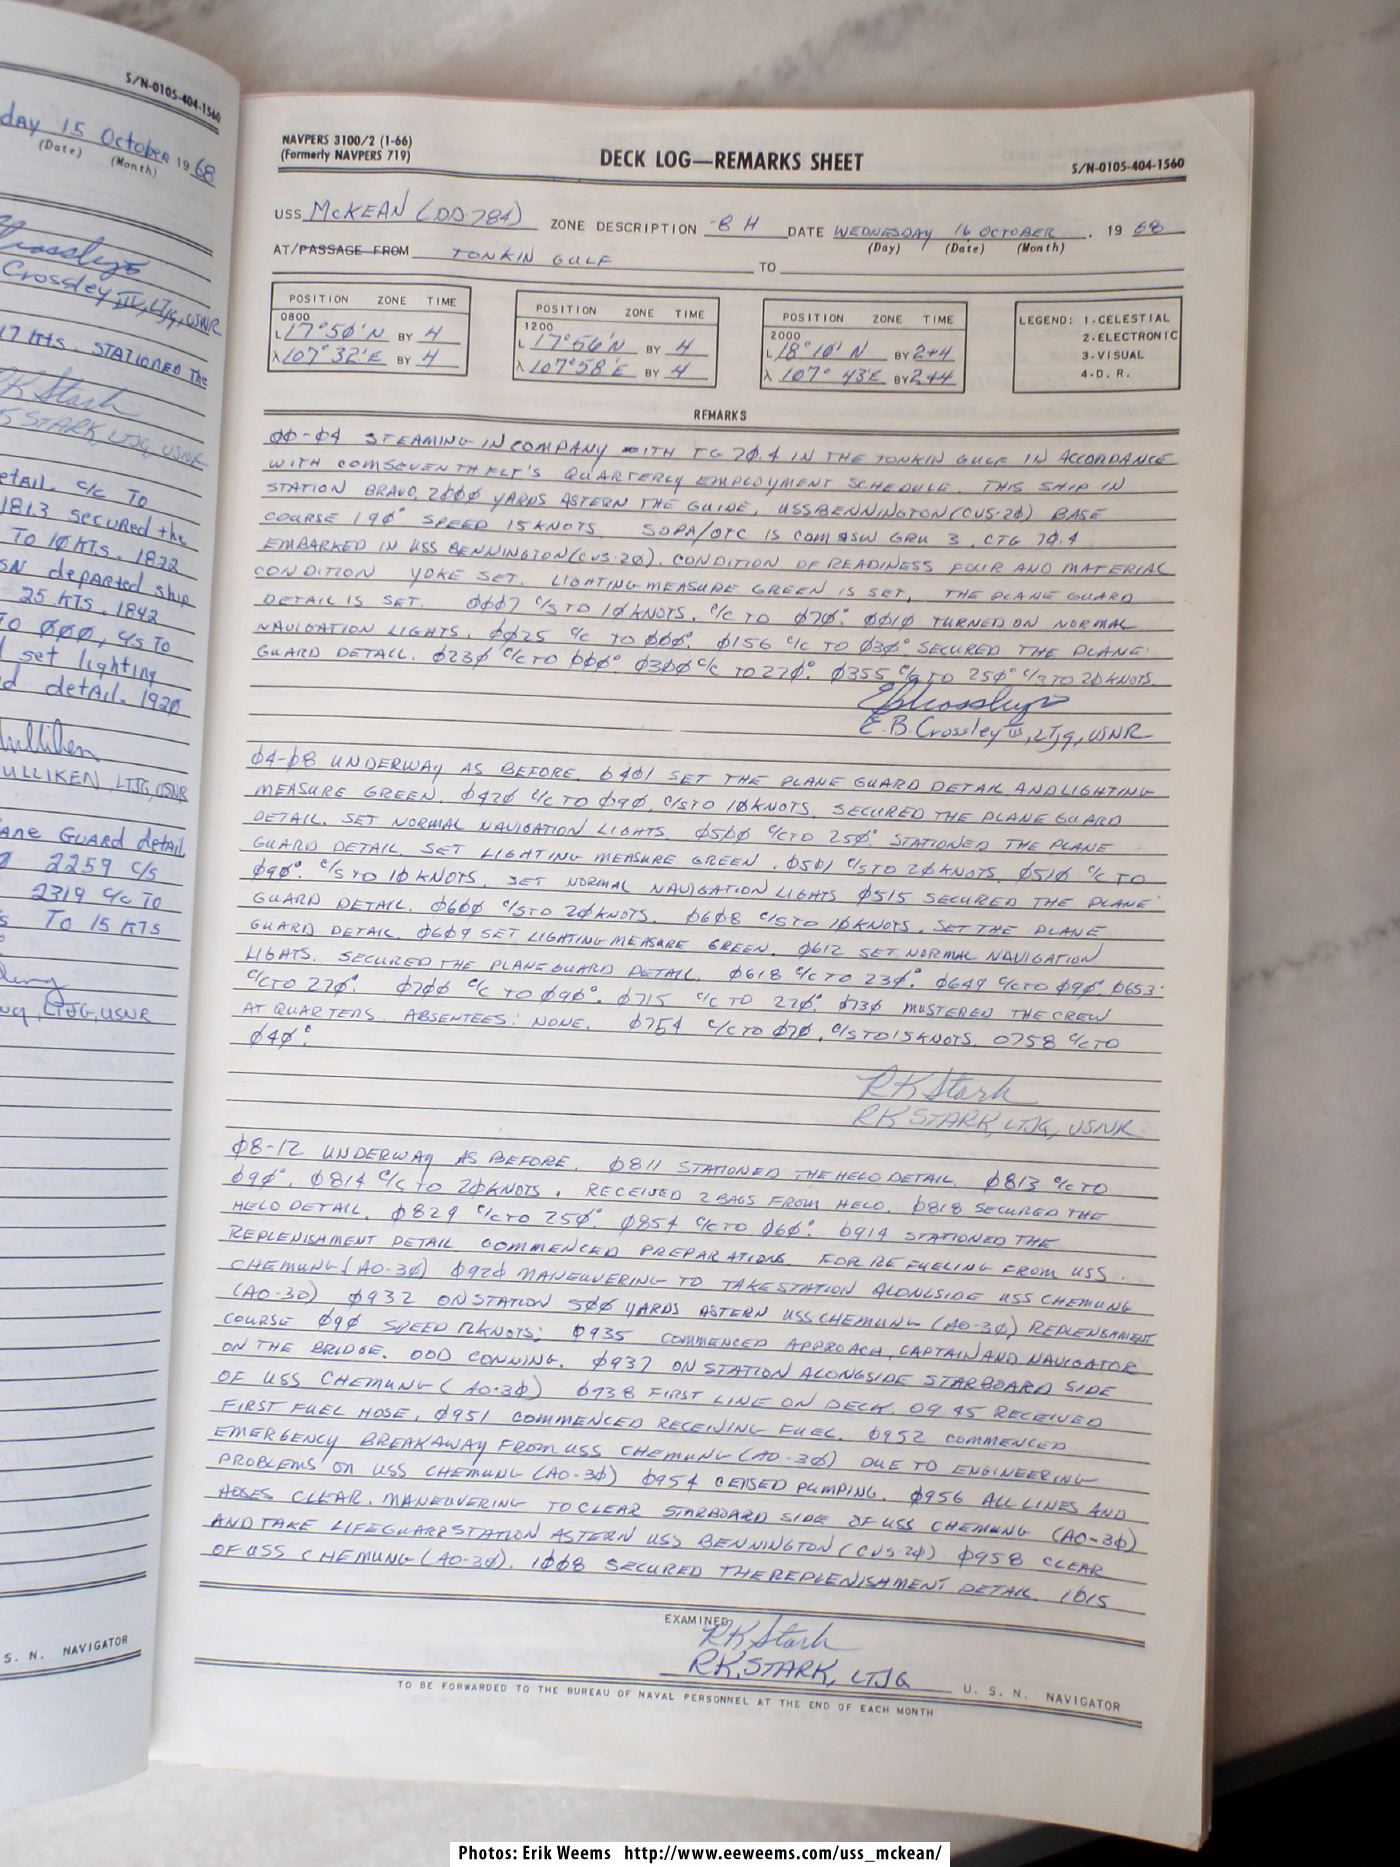 S/N-0105-404-1560
day 15 October 1968
(Date) (Month)
Crossley III, LTjg, USNR
17 KTS. STATIONED THE
RK Stark
STARK, LTJG, USNR
DETAIL. C/C TO
1813 SECURED the
TO 10 KTS. 1822
departed ship
25 KTS. 1842
TO ØØØ, C/S TO
set lighting
detail. 1920
MULLIKEN, LTJG, USNR
Plane GUARD detail
2259 C/S
2319 C/C TO
TO 15 KTS
LTJG, USNR
S. N. NAVIGATOR
NAVPERS 3100/2 (1-66)
(Formerly NAVPERS 719)
DECK LOG—REMARKS SHEET
S/N-0105-404-1560
USS McKEAN (DD-784) ZONE DESCRIPTION -8 H DATE WEDNESDAY 16 OCTOBER, 1968
(Day) (Date) (Month)
AT/PASSAGE FROM TONKIN GULF TO
POSITION ZONE TIME
0800
L 17°50'N BY 4
λ 107°32'E BY 4
POSITION ZONE TIME
1200
L 17°56'N BY 4
λ 107°58'E BY 4
POSITION ZONE TIME
2000
L 18°10'N BY 2+4
λ 107° 43'E BY 2+4
LEGEND: 1.CELESTIAL
2.ELECTRONIC
3.VISUAL
4.D. R.
REMARKS
ØØ-Ø4 STEAMING IN COMPANY WITH TG 7Ø.4 IN THE TONKIN GULF IN ACCORDANCE
WITH COMSEVENTHFLT'S QUARTERLY EMPLOYMENT SCHEDULE. THIS SHIP IN
STATION BRAVO, 2ØØØ YARDS ASTERN THE GUIDE, USS BENNINGTON (CVS-2Ø) BASE
COURSE 19Ø° SPEED 15 KNOTS. SOPA/OTC IS COMASW GRU 3, CTG 7Ø.4
EMBARKED IN USS BENNINGTON (CVS-2Ø). CONDITION OF READINESS FOUR AND MATERIAL
CONDITION YOKE SET. LIGHTING MEASURE GREEN IS SET, THE PLANE GUARD
DETAIL IS SET. ØØØ7 C/S TO 1Ø KNOTS, C/C TO Ø7Ø° ØØ1Ø TURNED ON NORMAL
NAVIGATION LIGHTS. ØØ25 C/C TO ØØØ° Ø156 C/C TO Ø3Ø° SECURED THE PLANE
GUARD DETAIL. Ø23Ø C/C TO ØØØ° Ø3ØØ C/C TO 27Ø° Ø355 C/C TO 25Ø° C/S TO 2Ø KNOTS.
EBCrossley III
E.B. Crossley III, LTjg, USNR
Ø4-Ø8 UNDERWAY AS BEFORE. Ø4Ø1 SET THE PLANE GUARD DETAIL AND LIGHTING
MEASURE GREEN. Ø42Ø C/C TO Ø9Ø, C/S TO 1Ø KNOTS. SECURED THE PLANE GUARD
DETAIL. SET NORMAL NAVIGATION LIGHTS. Ø5ØØ C/C TO 25Ø° STATIONED THE PLANE
GUARD DETAIL. SET LIGHTING MEASURE GREEN. Ø5Ø1 C/S TO 2Ø KNOTS. Ø51Ø C/C TO
Ø9Ø° C/S TO 1Ø KNOTS. SET NORMAL NAVIGATION LIGHTS Ø515 SECURED THE PLANE
GUARD DETAIL. Ø6ØØ C/S TO 2Ø KNOTS. Ø6Ø8 C/S TO 1Ø KNOTS. SET THE PLANE
GUARD DETAIL. Ø6Ø9 SET LIGHTING MEASURE GREEN. Ø612 SET NORMAL NAVIGATION
LIGHTS. SECURED THE PLANE GUARD DETAIL. Ø618 C/C TO 23Ø° Ø649 C/C TO Ø9Ø° Ø653
C/C TO 27Ø° Ø7ØØ C/C TO Ø9Ø° Ø715 C/C TO 27Ø° Ø73Ø MUSTERED THE CREW
AT QUARTERS. ABSENTEES: NONE. Ø754 C/C TO Ø7Ø, C/S TO 15 KNOTS. 0758 C/C TO
Ø4Ø°
RK Stark
RK STARK, LTJG, USNR
Ø8-12 UNDERWAY AS BEFORE. Ø811 STATIONED THE HELO DETAIL. Ø813 C/C TO
Ø9Ø°. Ø814 C/S TO 2Ø KNOTS. RECEIVED 2 BAGS FROM HELO. Ø818 SECURED THE
HELO DETAIL. Ø829 C/C TO 25Ø° Ø854 C/C TO Ø6Ø° Ø914 STATIONED THE
REPLENISHMENT DETAIL COMMENCED PREPARATIONS FOR REFUELING FROM USS
CHEMUNG (AO-3Ø) Ø92Ø MANEUVERING TO TAKE STATION ALONGSIDE USS CHEMUNG
(AO-30) Ø932 ON STATION 5ØØ YARDS ASTERN USS CHEMUNG (AO-3Ø) REPLENISHMENT
COURSE Ø9Ø SPEED 12 KNOTS; Ø935 COMMENCED APPROACH, CAPTAIN AND NAVIGATOR
ON THE BRIDGE. OOD CONNING. Ø937 ON STATION ALONGSIDE STARBOARD SIDE
OF USS CHEMUNG (AO-3Ø) Ø938 FIRST LINE ON DECK. 0945 RECEIVED
FIRST FUEL HOSE. Ø951 COMMENCED RECEIVING FUEL. Ø952 COMMENCED
EMERGENCY BREAKAWAY FROM USS CHEMUNG (AO-3Ø) DUE TO ENGINEERING
PROBLEMS ON USS CHEMUNG (AO-3Ø) Ø954 CEASED PUMPING. Ø956 ALL LINES AND
HOSES CLEAR. MANEUVERING TO CLEAR STARBOARD SIDE OF USS CHEMUNG (AO-3Ø)
AND TAKE LIFEGUARD STATION ASTERN USS BENNINGTON (CVS-2Ø) Ø958 CLEAR
OF USS CHEMUNG (AO-3Ø). 1ØØ8 SECURED THE REPLENISHMENT DETAIL. 1Ø15
EXAMINED
RK Stark
RK STARK, LTJG U. S. N. NAVIGATOR
TO BE FORWARDED TO THE BUREAU OF NAVAL PERSONNEL AT THE END OF EACH MONTH
Photos: Erik Weems http://www.eeweems.com/uss_mckean/